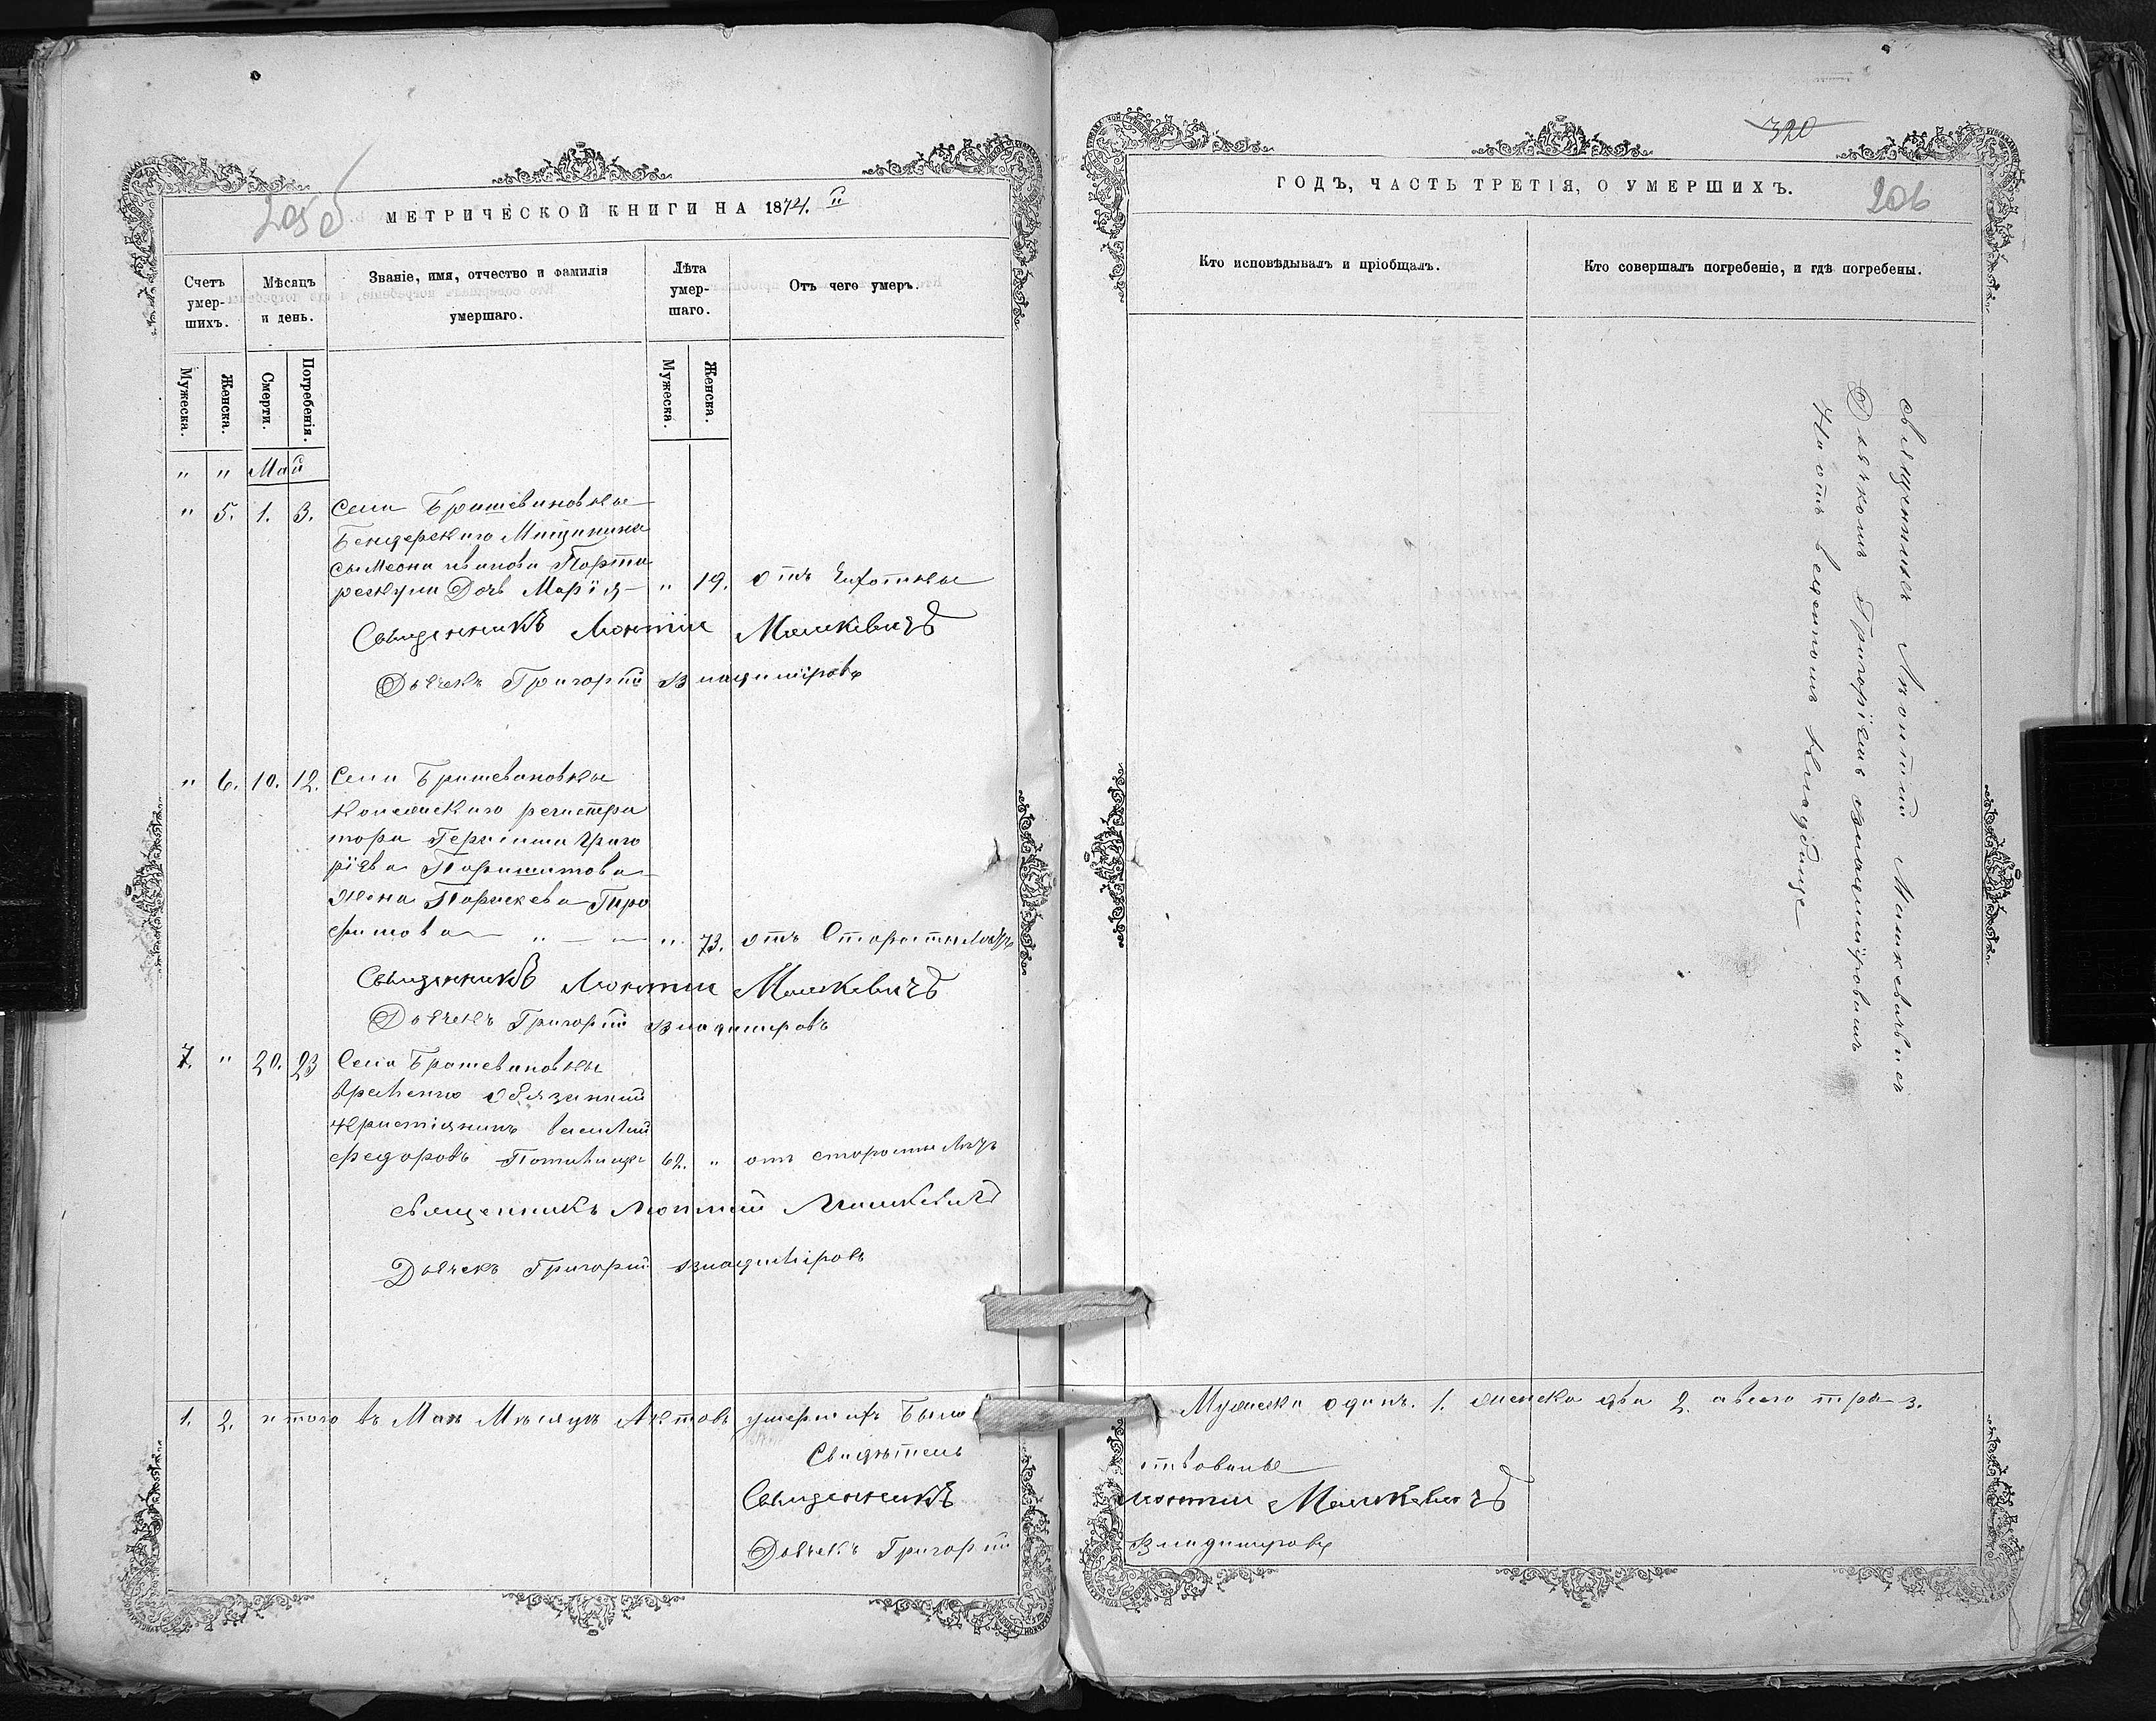 205 б
МЕТРИЧЕСКОЙ КНИГИ НА 1874. й
Счетъ умер-шихъ.
Мѣсяцъ и день.
Званіе, имя, отчество и фамилія умершаго.
Лѣта умер-шаго.
Отъ чего умеръ.
Мужеска.
Женска.
Смерти.
Погребенія.
Мужеска.
Женска.
" " Май
" 5. 1. 3. Села
Бендерскаго Мищанина
Симеона Иванова Порта
рескула Дочь Марія " 19. отъ Чихотки
Священникъ Леонтій Машкевичъ
Дьячекъ Григорій Владиміровъ
" 6. 10. 12. Села
Колежскаго регистра
тора Герасима Григо
ріева
Жена Параскева
" 73. отъ Старости лѣтъ
Священникъ Леонтій Машкевичъ
Дьячекъ Григорій Владиміровъ
7. " 20. 23 Села
временно обязанный
Кристіянинъ Василий
Федоровъ 62. " отъ старости лѣтъ
Священникъ Леонтій Машкевичъ
Дьячекъ Григорій Владиміровъ
1. 2. итого въ Маѣ Мѣсяцѣ Актовъ умершихъ было
Свидѣтель
Священникъ
Дьячекъ Григорий
320
ГОДЪ, ЧАСТЬ ТРЕТІЯ, О УМЕРШИХЪ.
206
Кто исповѣдывалъ и пріобщалъ.
Кто совершалъ погребеніе, и гдѣ погребены.
Священникъ Леонтий Машкевичь и съ
Дьячкомъ Григоріемъ Владиміровимъ
На отъ веденомъ Кладбище
Мужеска одинъ. 1. женска два 2. а всего три 3.
ствовали
Леонтий Машкевичъ
Владимировъ